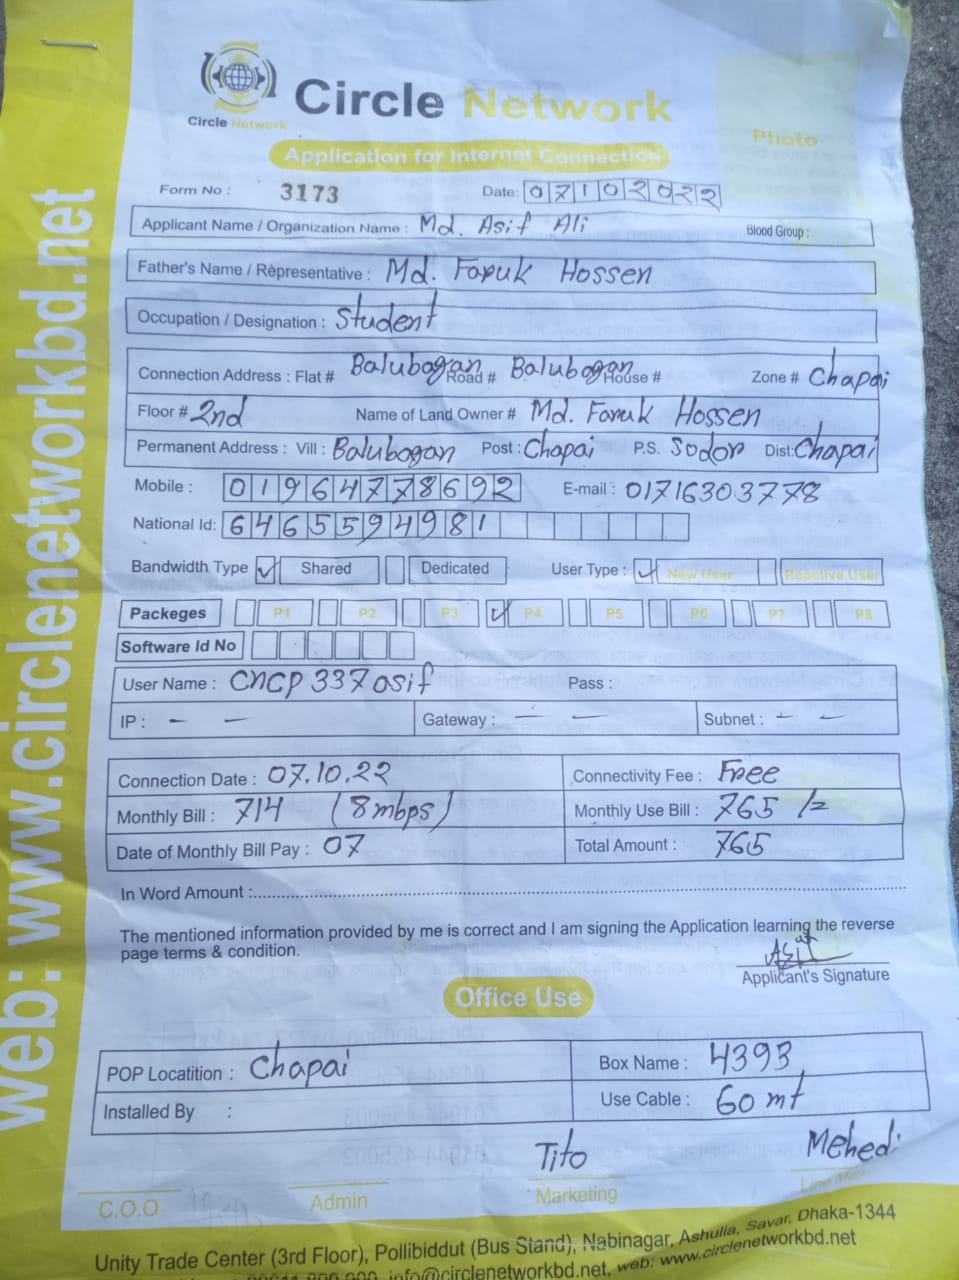 web: www.circlenetworkbd.net
Circle Network
Circle Network
Application for Internet Connection
Photo
Form No : 3173 Date: 07102022
Applicant Name / Organization Name : Md. Asif Ali Blood Group :
Father's Name / Representative : Md. Faruk Hossen
Occupation / Designation : Student
Connection Address : Flat # Balubagan Road # Balubogan House # Zone # Chapai
Floor # 2nd Name of Land Owner # Md. Faruk Hossen
Permanent Address : Vill : Balubogan Post : Chapai P.S. Sodor Dist: Chapai
Mobile : 01964778692 E-mail : 01716303778
National Id: 6465594981
Bandwidth Type ✓ Shared Dedicated User Type : ✓ New User Reactive User
Packeges P1 P2 P3 ✓ P4 P5 P6 P7 P8
Software Id No
User Name : CNCP337asif Pass :
IP : - - Gateway : - - Subnet : - -
Connection Date : 07.10.22 Connectivity Fee : Free
Monthly Bill : 714 (8mbps) Monthly Use Bill : 765 /=
Date of Monthly Bill Pay : 07 Total Amount : 765
In Word Amount :
The mentioned information provided by me is correct and I am signing the Application learning the reverse
page terms & condition.
Asif
Applicant's Signature
Office Use
POP Locatition : Chapai Box Name : 4393
Installed By : Use Cable : 60 mt
Tito Mehedi
C.O.O Admin Marketing Line Man
Unity Trade Center (3rd Floor), Pollibiddut (Bus Stand), Nabinagar, Ashulia, Savar, Dhaka-1344
info@circlenetworkbd.net, web: www.circlenetworkbd.net